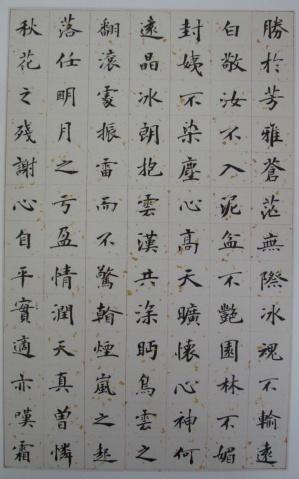 勝於芳雅蒼茫無際冰魂不輸遠
白敬汝不入泥盆不艷園林不媚
封姨不染塵心高天曠懷心神何
遠晶冰朗抱雲漢共深眄鳥雲之
翻滾霎振雷而不驚翰煙嵐之起
落任明月之亏盈情潤天真曾憐
秋花之殘謝心自平實適亦嘆霜